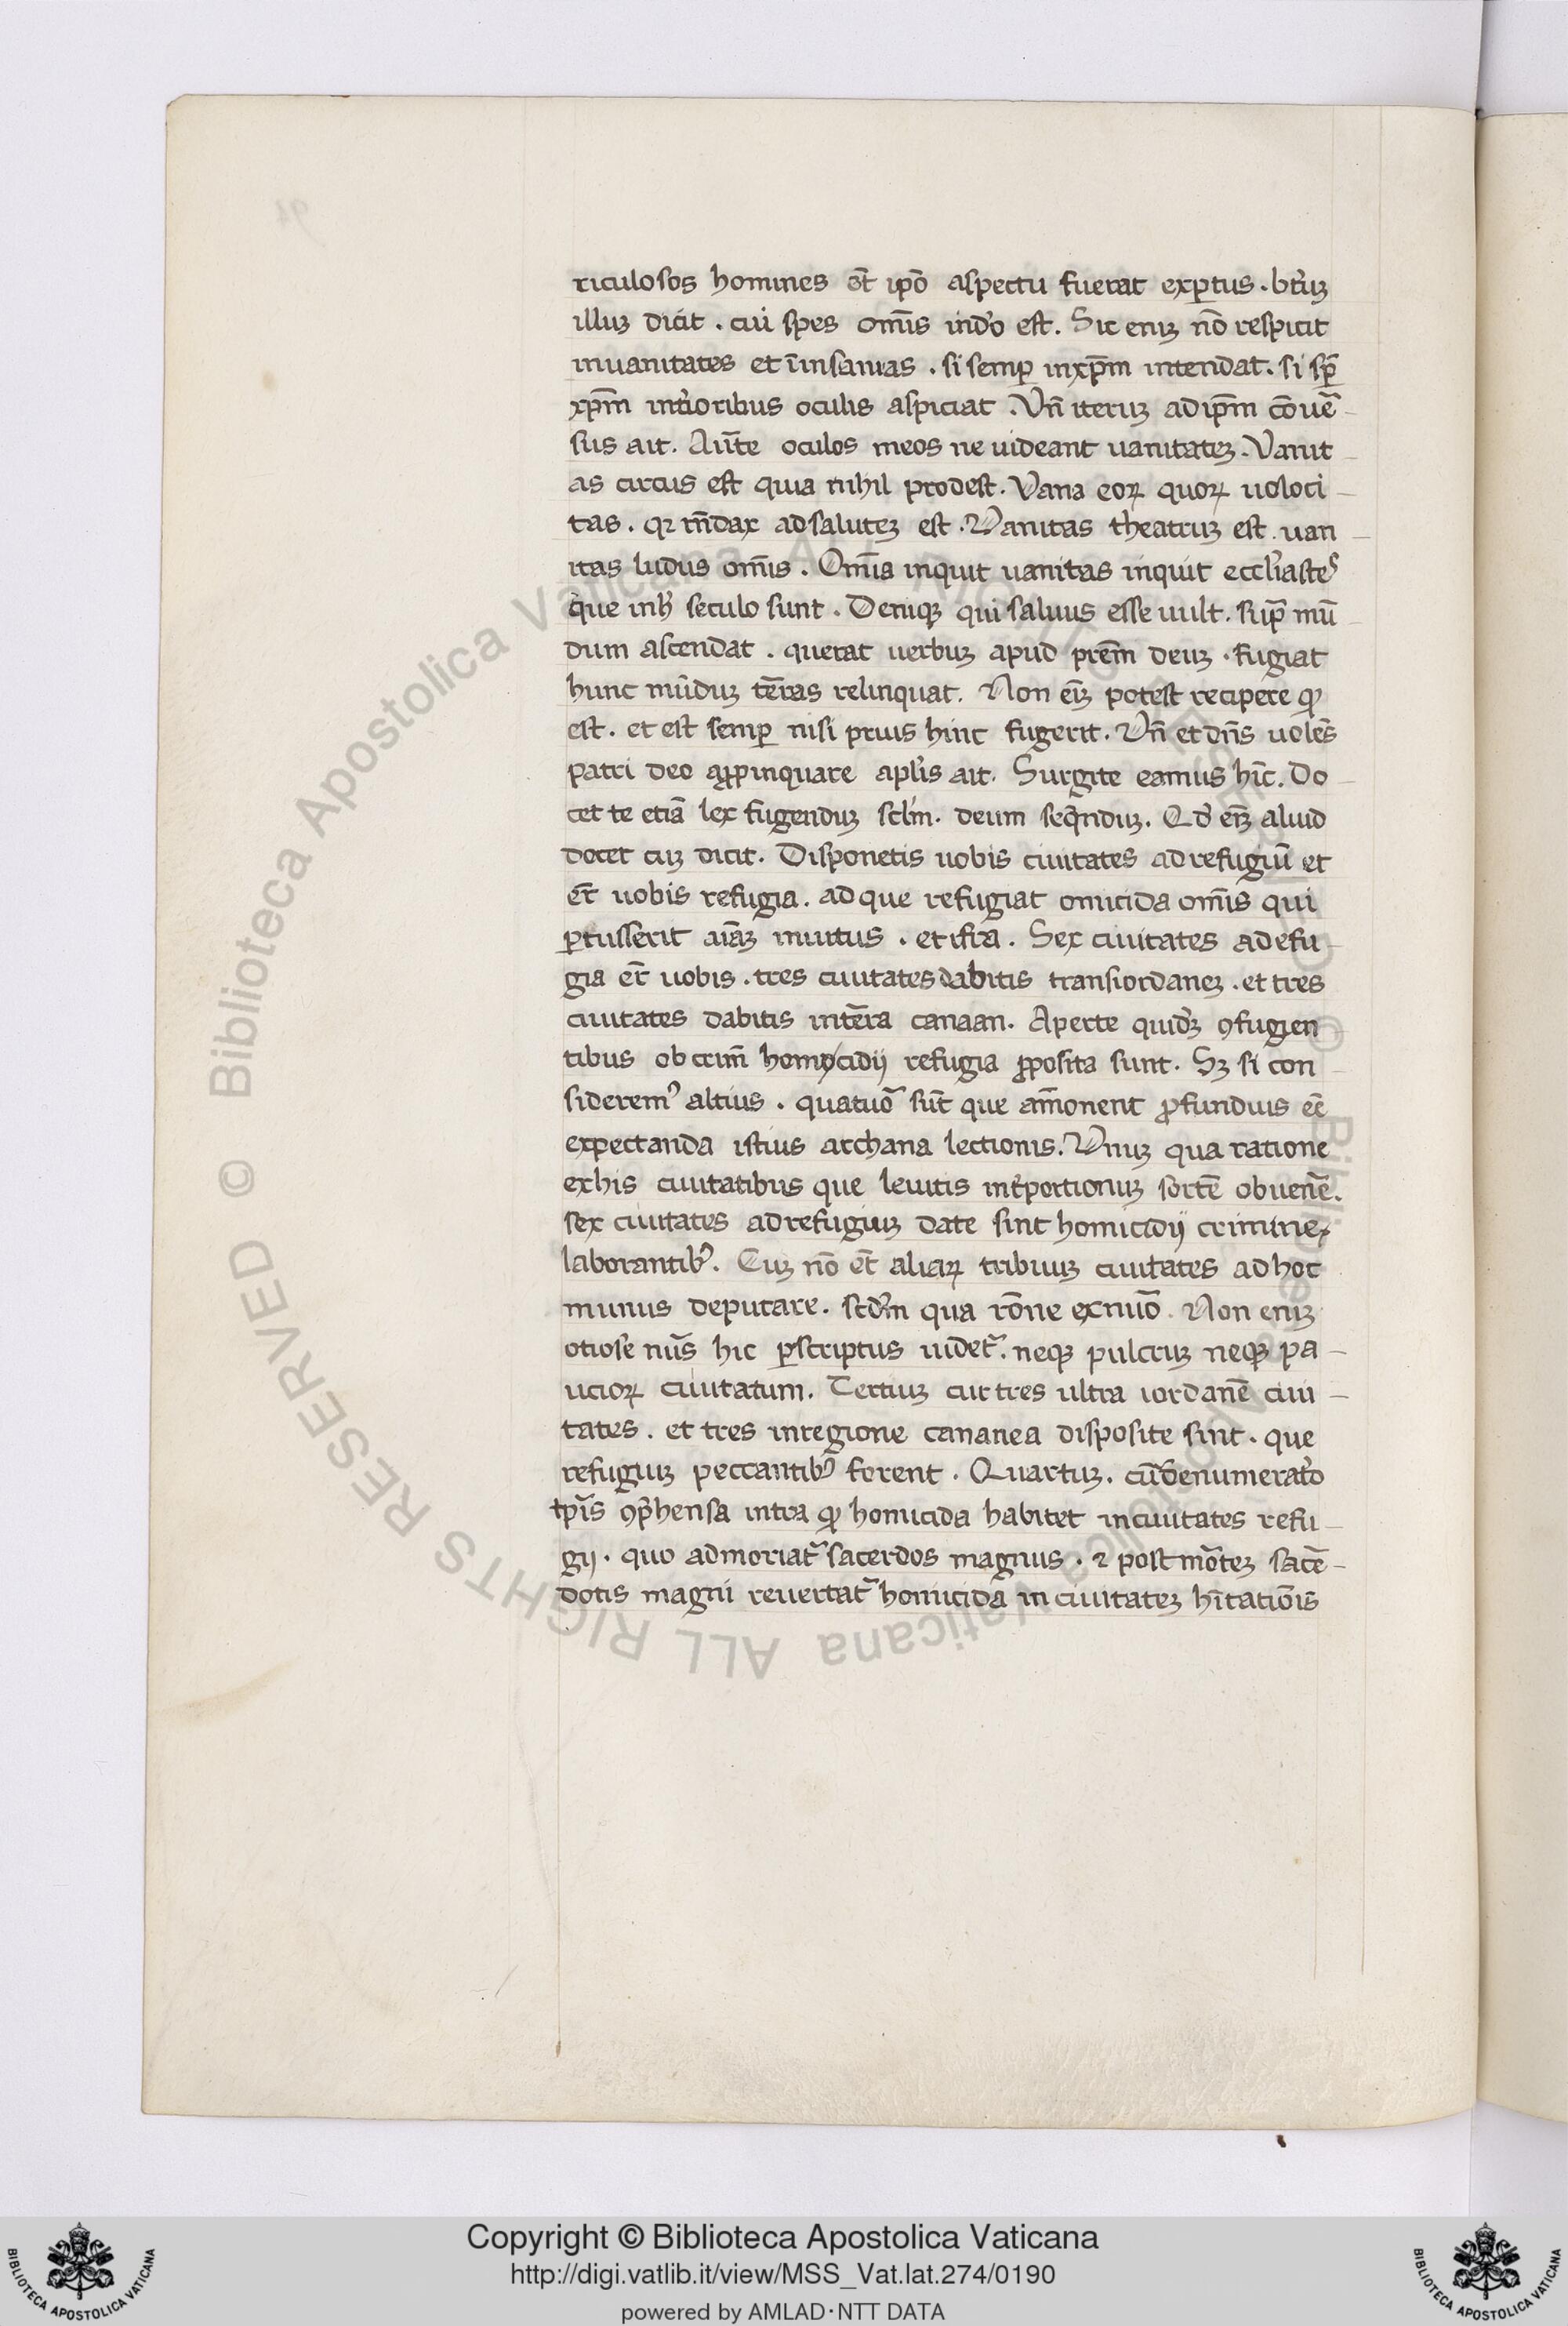 riculosos homines ēt ipō aspectu fuerat exꝑtus . bt̄uꝫ
illuꝫ dicit . cui spes om̄is indo est . Sic eniꝫ nō respicit
inuanitates et ī insanias . si semꝑ inxp̄m intendat . si sp̄
xp̄m int̄ioribus oculis aspiciat . Vn̄ iteruꝫ ad ip̄m cōuē
sus ait . Aūte oculos meos ne uideant uanitateꝫ . Vanit
as circus est quia nihil prodest . Vana eoꝝ quoꝝ uoloci
tas . qꝛ m̄dax ad saluteꝫ est . Vanitas theatruꝫ est . uan
itas ludus om̄is . Om̄ia inquit uanitas inquit eccl̄iastes
que inh̄ seculo sunt . Deniqꝫ qui saluus esse uult . sup̄ mū
dum ascendat . querat uerbuꝫ apud pr̄em deuꝫ . fugiat
hunc mūduꝫ tēras relinquat . Non ēiꝫ potest recipere ꝙ
est . et est semꝑ nisi prius hinc fugerit . Vn̄ et dn̄s uolēs
patri deo aꝓpinquare apl̄is ait . Surgite eamus hīc . Do
cet te etiā lex fugienduꝫ scl̄m . deum seq̄nduꝫ . Qd̄ ēiꝫ aliud
docet cuꝫ dicit . Disponetis uobis ciuitates ad refugiū et
er̄t uobis refugia . ad que refugiat omicida om̄is qui
ꝑcusserit aiāꝫ inuitus . et ifra . Sex ciuitates ad efu
gia er̄t uobis . tres ciuitates dabitis transiordaneꝫ . et tres
ciuitates dabitis intēra canaan . Aperte quideꝫ ꝯfugien
tibus ob crim̄ homycidij refugia ꝓposita sunt . Sꝫ si con
siderem᾿ altius . quatuō sūt que am̄onent ꝓfundius eē
expectanda istius archana lectionis . Vnuꝫ qua ratione
exhis ciuitatibus que leuitis int̄portionuꝫ sortē obuenē .
sex ciuitates ad refugiuꝫ date sint homicidij crimine
laborantib᾿ . Cuꝫ nō ēt aliaꝝ tribuuꝫ ciuitates ad hoc
munus deputare . scd̄m qua rōne ex nūo . Non eniꝫ
otiose nūs hic ꝑscriptus uidet᾿ . neqꝫ pulcruꝫ neqꝫ pa
ucioꝝ ciuitatum . Tertiuꝫ cur tres ultra iordanē ciui
tates . et tres inregione cananea disposite sint . que
refugiuꝫ peccantib᾿ forent . Quartuꝫ . cūdenumerato
tp̄is ꝯp̄hensa intra ꝙ homicida habitet inciuitates refu
gij . quo admoriat᾿ sacerdos magnus . ⁊ post mōteꝫ sacē
dotis magni reuertat᾿ homicida in ciuitateꝫ hītatiōis
Copyright © Biblioteca Apostolica Vaticana
http://digi.vatlib.it/view/MSS_Vat.lat.274/0190
powered by AMLAD·NTT DATA